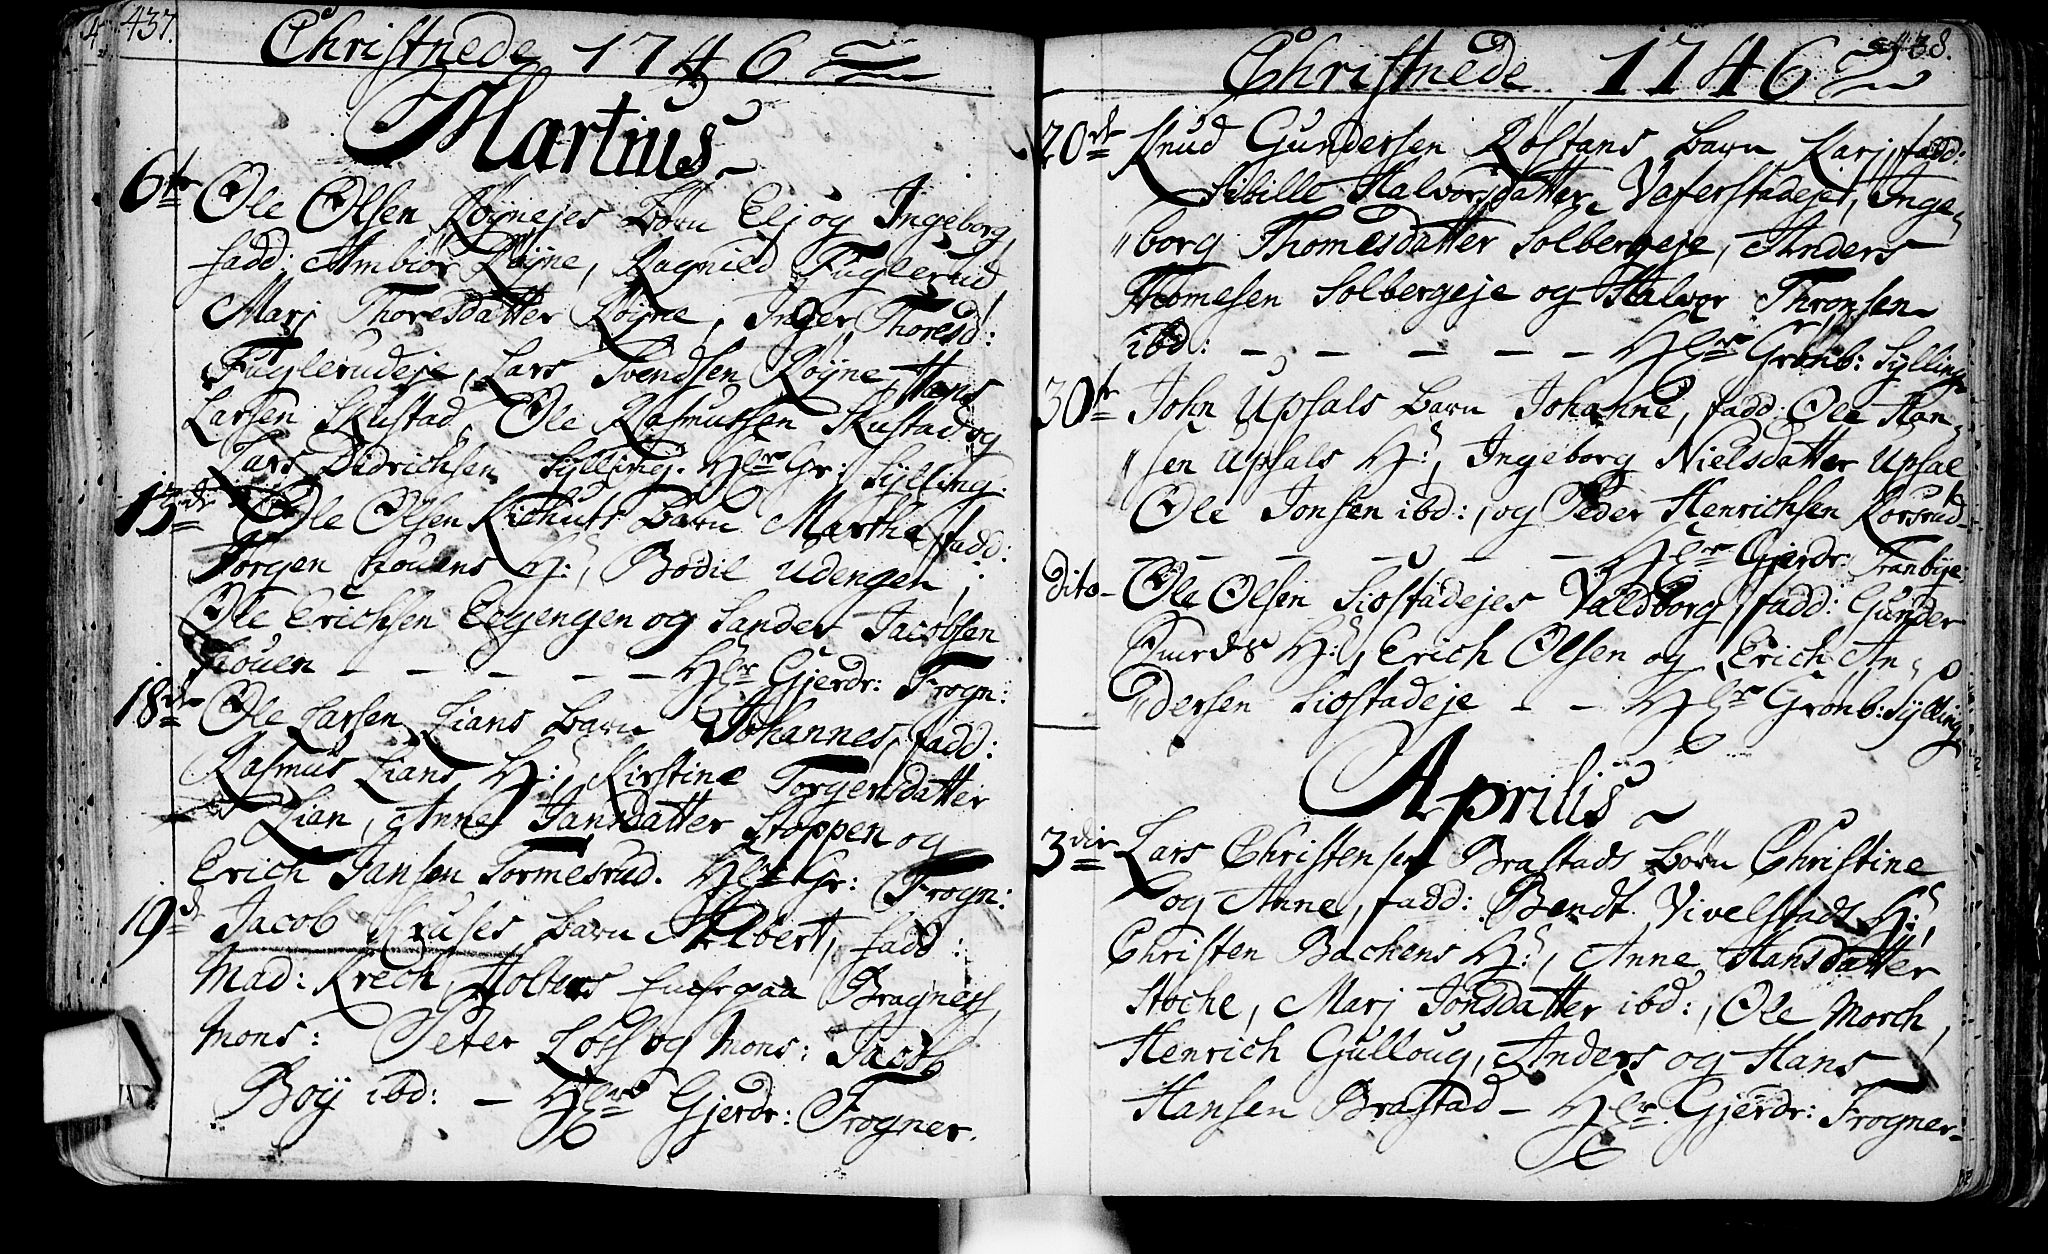 437.
Christnede 1746
Martius
6te Ole Olsen Røynejes børn Elj og Ingeborg,
fadd: Ambiør Røyne, Ragnild Fuglerud,
Marj Thoresdatter Røyne, Inger Thoresd:
Fuglerudeje, Lars Svendsen Røyne, Hans
Larsen Skustad, Ole Rasmussen Skustad og
Lars Didrichsen Sylling. Hlr Gr: Sylling:
13de Ole Olsen Kiehuts barn Martha, fadd:
Jørgen Houens H:, Bodil Udengen,
Ole Erichsen Eegengen og Sander Jacobsen
Houen - - - - - - Hlr Gjerdr: Frogn:
18de Ole Larsen Lians barn Johannes, fadd:
Rasmus Lians H:, Kirstine Torgersdatter
Lian, Anne Jansdatter Stoppen og
Erich Jansen Tormesrud. Hlr Gr: Frogn:
19d Jacob Kruses barn Albert, fadd:
Mad: Krech, Holbers paa Bragness,
Mons: Peter Loss og Mons: Jacob
Boy ibd: - Hlr Gjerdr: Frogner.
438.
Christnede 1746
20de Knud Gundersen Røstans barn Karj, fadd:
Sibille Halvorsdatter Veferstadeje, Inge-
"borg Thomesdatter Solbergeje, Anders
Thomesen Solbergeje og Halvor Thronsen
ibd: - - - - - Hlr Grønb: Sylling
30te John Upsals barn Johanne, fadd: Ole Han-
"sen Upsals H:, Ingeborg Nielsdatter Upsal
Ole Jonsen ibd:, og Peder Henrichsen Korsrud
- - - - - - Hlr Gjerdr: Tranbye:
Dito- Ole Olsen Siostadejes Valdborg, fadd: Gunder
H:, Erich Olsen og Erich An-
"dersen Siostadeje - - Hlr Grønb: Sylling
Aprilis
3die Lars Christensen Brastads børn Christine
og Anne, fadd: Bendt Vivelstads H:,
Christen Bachens H:, Anne Hansdatter
Stoche, Marj Jonsdatter ibd:, Ole Morch,
Henrich Gulloug, Anders og Hans
Hansen Brastad - Hlr Gjerdr: Frogner: